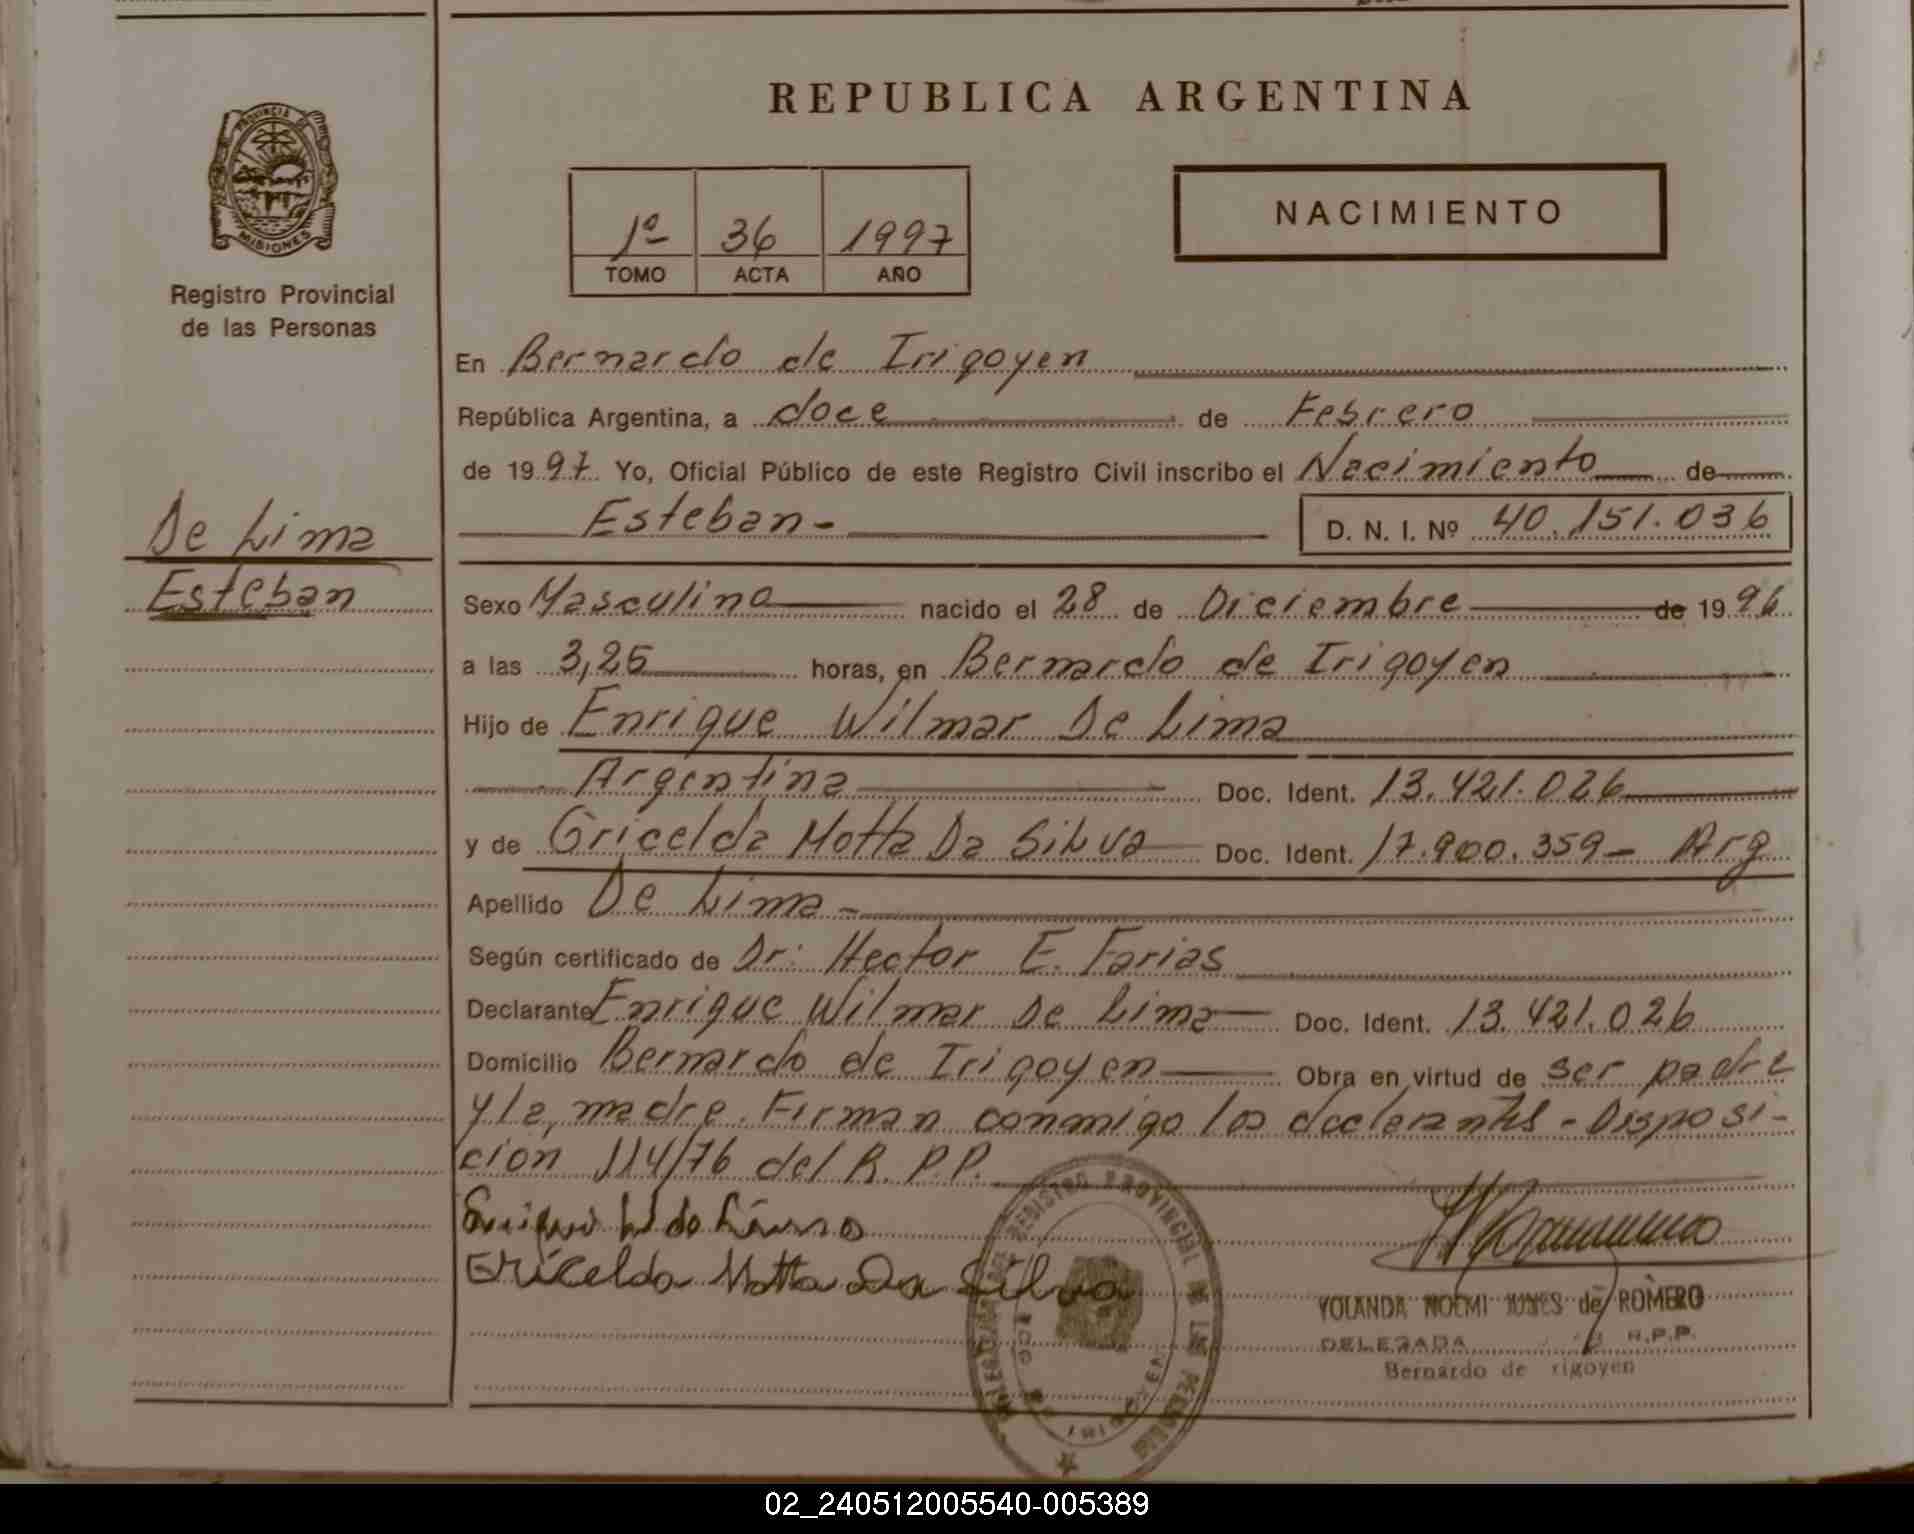 REPUBLICA ARGENTINA
PROVINCIA DE
MISIONES
Registro Provincial
de las Personas
De Lima
Esteban
1º 36 1997
TOMO ACTA AÑO
NACIMIENTO
En Bernardo de Irigoyen
República Argentina, a doce de Febrero
de 1997 Yo, Oficial Público de este Registro Civil inscribo el Nacimiento de
Esteban- D. N. I. Nº 40.151.036
Sexo Masculino nacido el 28 de Diciembre de 1996
a las 3,25 horas, en Bernardo de Irigoyen
Hijo de Enrique Wilmar De Lima
Argentina Doc. Ident. 13.421.026
y de Gricelda Motta Da Silva Doc. Ident. 17.900.359- Arg
Apellido De Lima-
Según certificado de Dr: Hector E. Farias
Declarante Enrique Wilmar De Lima Doc. Ident. 13.421.026
Domicilio Bernardo de Irigoyen Obra en virtud de ser padre
y la madre. Firman conmigo los declarantes - Disposi-
ción 114/76 del R. P.P.
Gricelda Motta Da Silva
REGISTRO PROVINCIAL DE LAS PERSONAS
YOLANDA NOEMI de ROMERO
DELEGADA R.P.P.
Bernardo de rigoyen
02_240512005540-005389